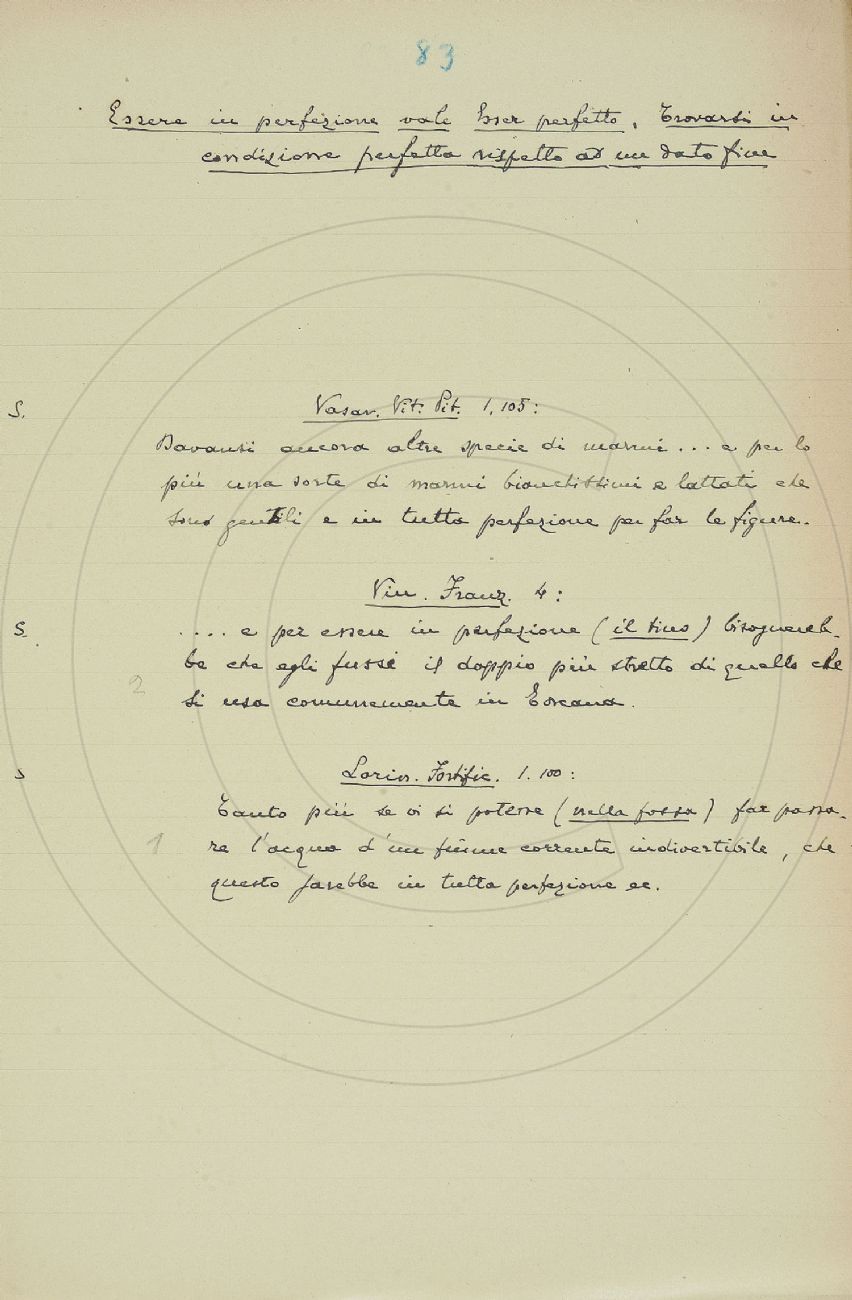 83
Essere in perfezione vale Esser perfetto, Trovarsi in
condizione perfetta rispetto ad un dato fine
S. Vasar. Vit. Pit. 1, 105:
Cavansi ancora altre specie di marmi... e per lo
più una sorte di marmi bianchissimi e lattati che
sono gentili e in tutta perfezione per far le figure.
Vin. Franz. 4:
S. .... e per essere in perfezione (il tino) bisognereb-
be che egli fussi il doppio più stretto di quello che
2 si usa comunemente in Toscana.
S Lorin. Fortific. 1. 100:
Tanto più se vi si potesse (nella fossa) far passa-
1 re l'acqua d'un fiume corrente indivertibile, che
questo sarebbe in tutta perfezione ec.